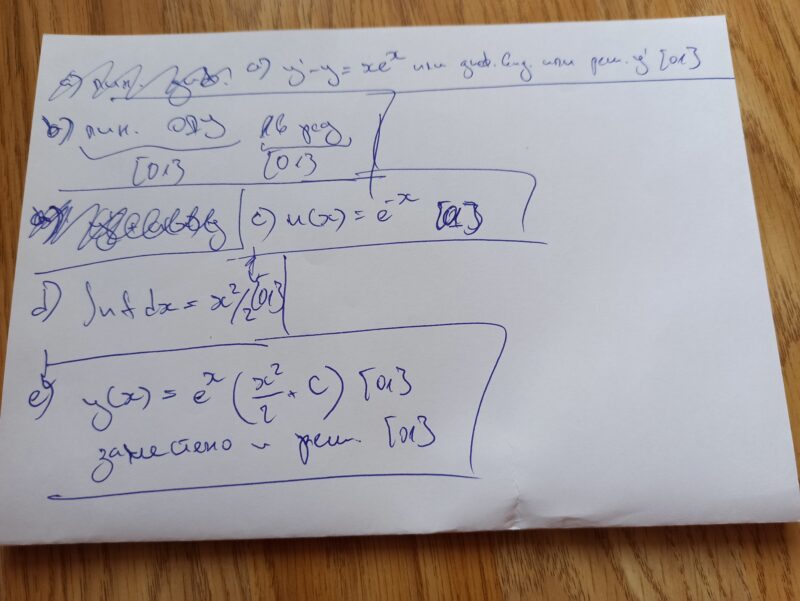 a) y' - y = xe^x или диф. вид. или реш. y' [01}
b) лин. ОДУ I-ви ред
[01} [01}
c) u(x) = e^-x [01}
d) ∫uf dx = x²/2 [01}
e) y(x) = e^x (x²/2 + C) [01}
заместено и реш. [01}